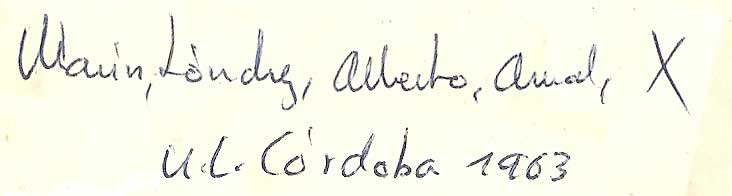 Marin, Lóndrez, Alberto, Arnal, X
U.L. Córdoba 1963